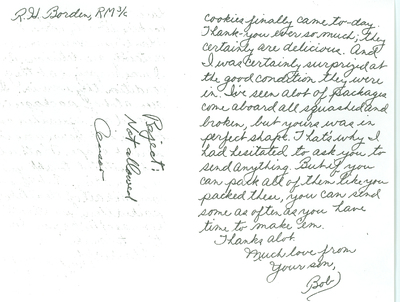 R.H. Borden, RM 3/c
Reject:
Not allowed
Censor
cookies finally came to-day.
Thank-you ever so much; they
certainly are delicious. And
I was certainly surprized at
the good condition they were
in. I've seen alot of packages
come aboard all squashed and
broken, but yours was in
perfect shape. That's why I
had hesitated to ask you to
send anything. But if you
can pack all of them like you
packed these, you can send
some as often as you have
time to make 'em.
Thanks alot.
Much love from
Your son,
Bob